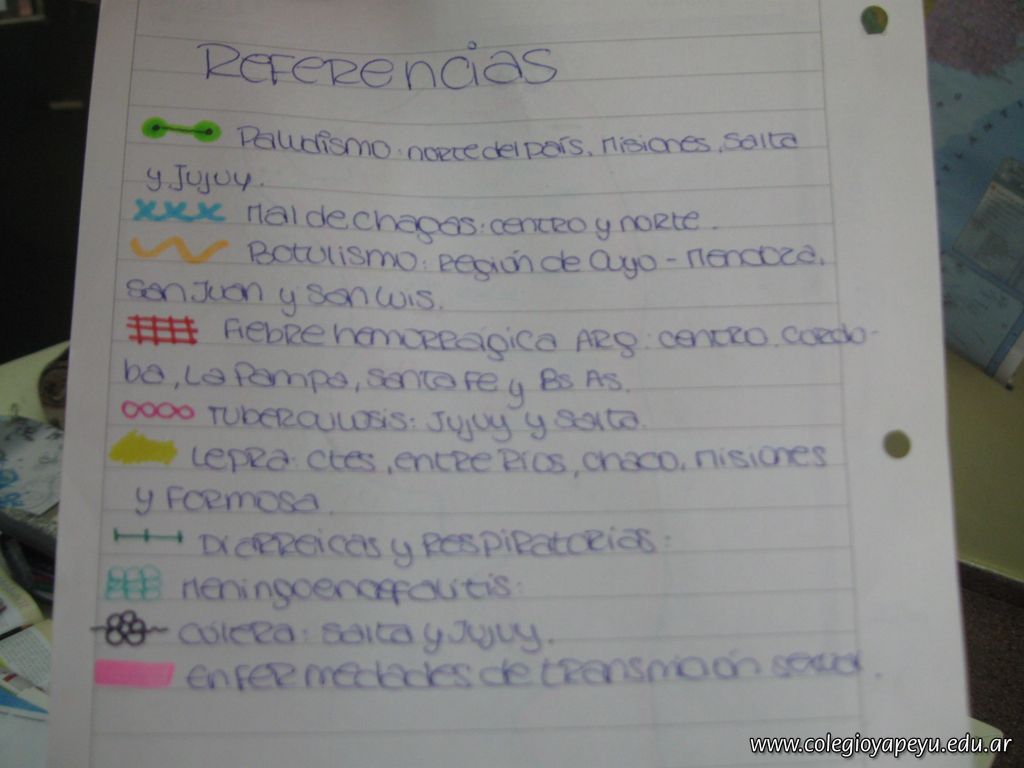 Referencias
Paludismo: norte del país, Misiones, Salta
y Jujuy.
Mal de chagas: centro y norte.
Botulismo: Región de Cuyo - Mendoza,
San Juan y San Luis.
Fiebre hemorrágica Arg: centro. Cordo-
ba, La Pampa, Santa Fe y Bs As.
Tuberculosis: Jujuy y Salta.
Lepra: Ctes, Entre Ríos, Chaco, Misiones
y Formosa.
Diarreicas y Respiratorias:
Meningoencefalitis:
Cólera: Salta y Jujuy.
Enfermedades de transmición sexual.
www.colegioyapeyu.edu.ar